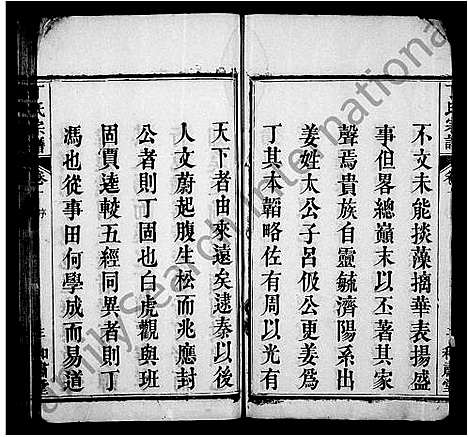 不文未能掞藻摛華表揚盛
事但畧總巔末以丕著其家
聲焉貴族自靈毓濟陽系出
姜姓太公子呂伋公更姜爲
丁其本韜略佐有周以光有
天下者由來遠矣逮秦以後
人文蔚起腹生松而兆應封
公者則丁固也白虎觀與班
固賈逵較五經同異者則丁
馮也從事田何學成而易道
氏宗譜
卷
氏宗譜
卷
FamilySearch International